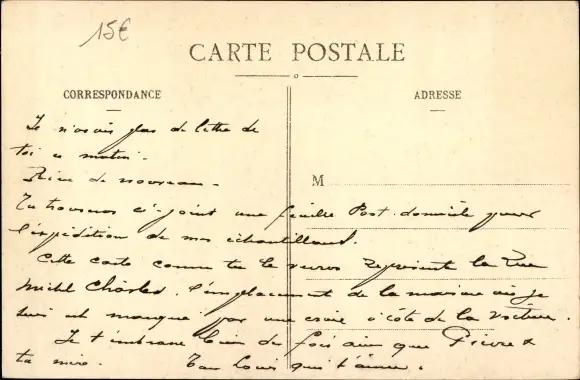 15€
CARTE POSTALE
CORRESPONDANCE
ADRESSE
Je n'ai pas de lettre de
toi ce matin.
Rien de nouveau -
M
Tu trouveras ci-joint une feuille Post. domicile pour
l'expédition de mes échantillons.
Cette carte comme tu le verras représente la Rue
Michel Charles, l'emplacement de la maison où je
suis est marqué par une croix à côté de la voiture.
Je t'embrasse bien des fois ainsi que Pierre &
ta mère. Ton Louis qui t'aime.